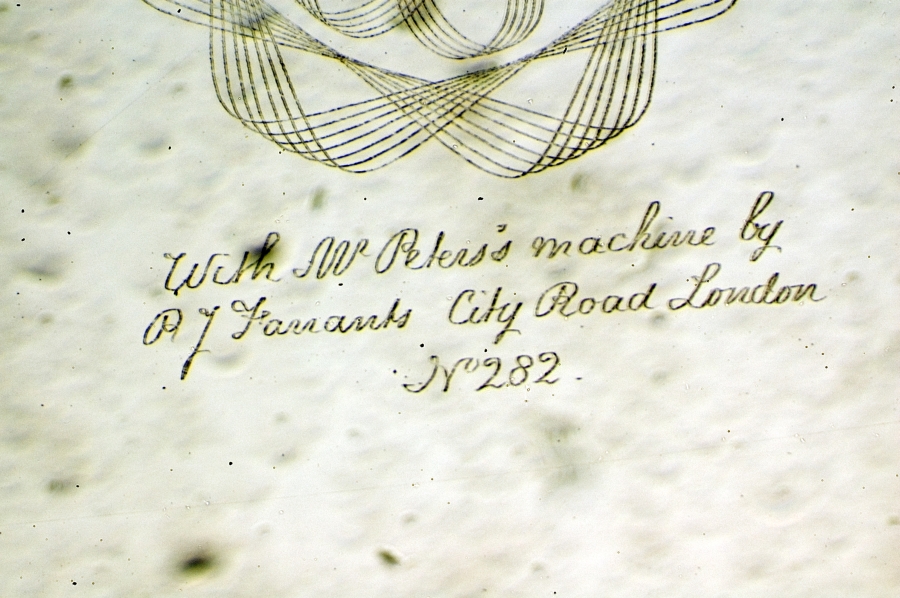 With Mr Peters's machine by
R J Farrants City Road London
No 282.